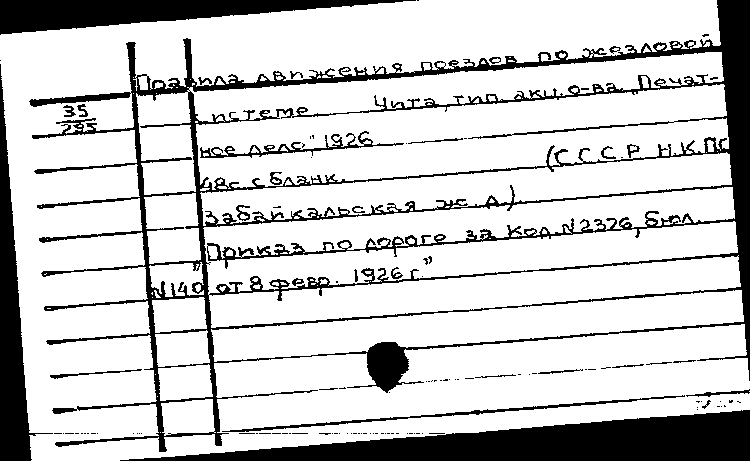 Правила движения поездов по жезловой
35
295
системе. Чита, тип. акц. о-ва „Печат-
ное дело", 1926
48с. с бланк. (С.С.С.Р. Н.К.ПС
Забайкальская ж.д.)
„Приказ по дороге за код. N2376, бюл.
N140 от 8 февр. 1926 г."